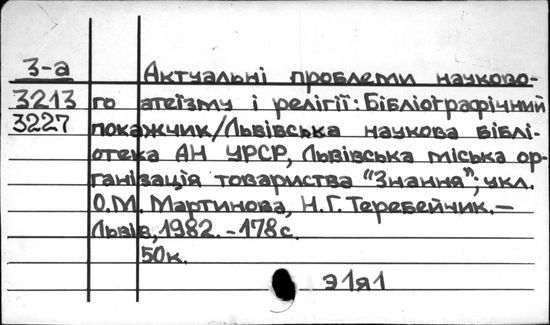 З-а Актуальні проблеми науково-
3213 го атеїзму і релігії: Бібліографічний
3227 покажчик/Львівська наукова біблі-
отека АН УРСР, Львівська міська ор-
ганізація товариства "Знання"; укл.
О.М. Мартинова, Н.Г. Теребейчик.—
Львів, 1982.-178с.
50к.
Э1я1